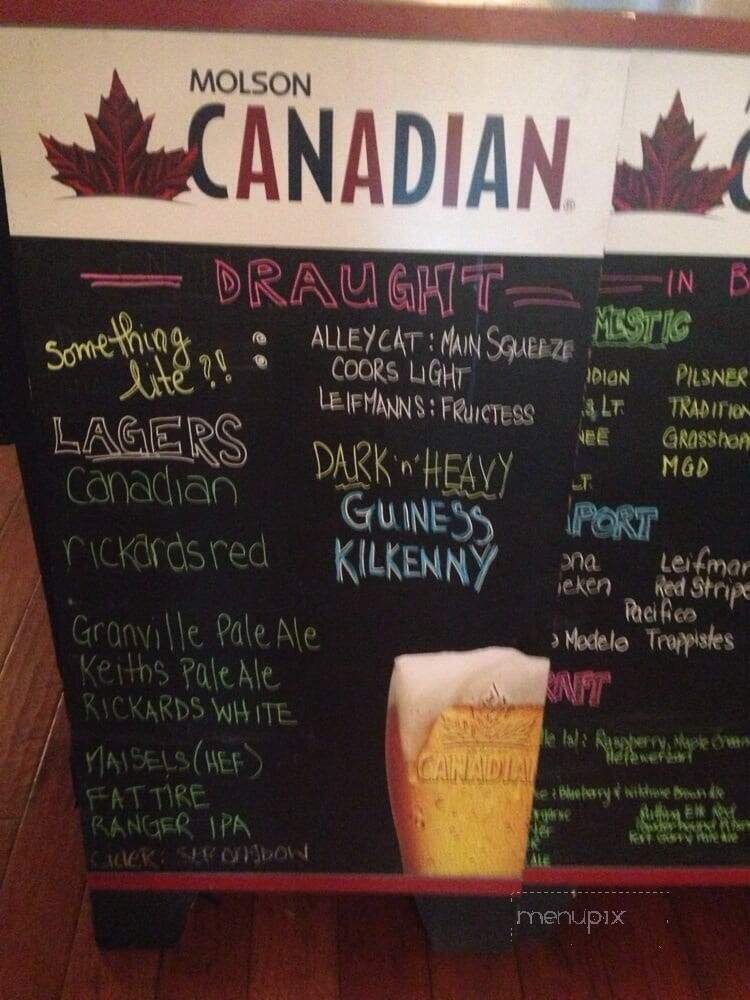 MOLSON
CANADIAN
DRAUGHT
something
lite?!
:
ALLEYCAT: MAIN SQUEEZE
COORS LIGHT
LEIFMANNS: FRUICTESS
LAGERS
Canadian
rickards red
DARK 'n' HEAVY
GUINESS
KILKENNY
Granville Pale Ale
Keiths Pale Ale
RICKARDS WHITE
MAISELS (HEF)
FAT TIRE
RANGER IPA
CIDER:
CANADIAN
IN B
MESTIC
DIAN PILSNER
LT. TRADITIO
EE GRASSHO
LT. MGD
PORT
ona Leifmar
eken Red Stripe
Pacifico
Modelo Trappistes
RAFT
Raspberry, Maple Cream
Hefeweizen
Blueberry
ALE
menupix